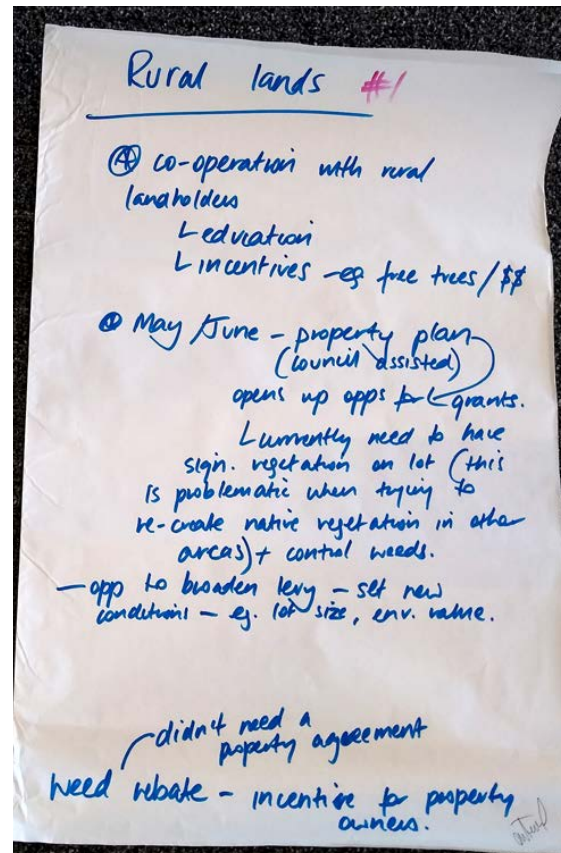 Rural lands #1
④ co-operation with rural
landholders
└ education
└ incentives - eg free trees / $$
① May/June - property plan
(council assisted)
opens up opps for grants.
└ currently need to have
sign. vegetation on lot (this
is problematic when trying to
re-create native vegetation in other
areas) + control weeds.
- opp to broaden levy - set new
conditions - eg. lot size, env. value.
didn't need a
property agreement
weed rebate - incentive for property
owners.